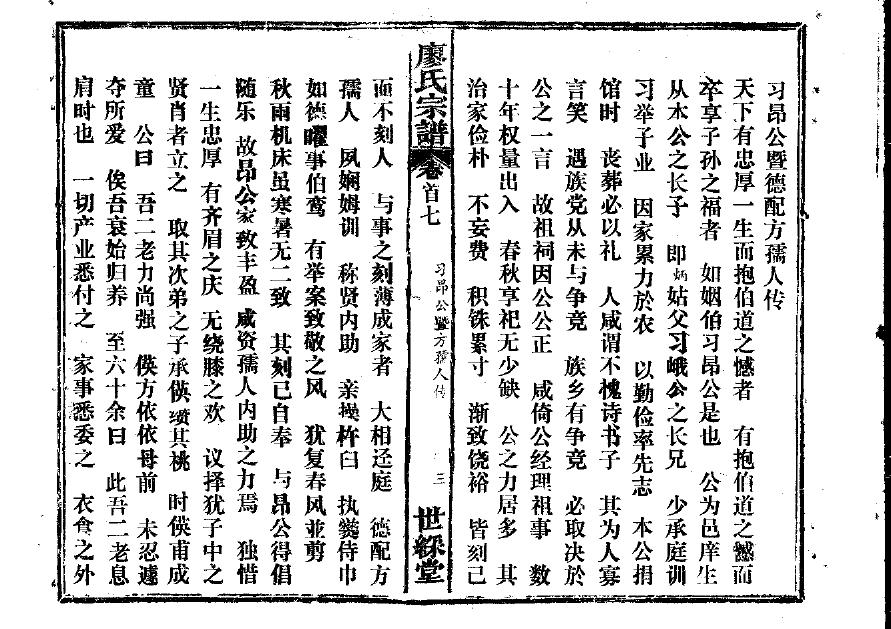 习昂公暨德配方孺人传
天下有忠厚一生而抱伯道之憾者 有抱伯道之憾而
卒享子孙之福者 如姻伯习昂公是也 公为邑庠生
从本公之长子 即炳姑父习峨公之长兄 少承庭训
习举子业 因家累力於农 以勤俭率先志 本公捐
馆时 丧葬必以礼 人咸谓不愧诗书子 其为人寡
言笑 遇族党从未与争竞 族乡有争竞 必取决於
公之一言 故祖祠因公公正 咸倚公经理祖事 数
十年权量出入 春秋享祀无少缺 公之力居多 其
治家俭朴 不妄费 积铢累寸 渐致饶裕 皆刻己
廖氏宗譜
卷首七
习昂公暨方孺人传
三
世綵堂
而不刻人 与事之刻薄成家者 大相迳庭 德配方
孺人 夙娴姆训 称贤内助 亲操杵臼 执爨侍巾
如德曜事伯鸾 有举案致敬之风 犹复春风並剪
秋雨机床虽寒暑无二致 其刻己自奉 与昂公得倡
随乐 故昂公家致丰盈 咸资孺人内助之力焉 独惜
一生忠厚 有齐眉之庆 无绕膝之欢 议择犹子中之
贤肖者立之 取其次弟之子承偀缵其祧 时偀甫成
童 公曰 吾二老力尚强 偀方依依母前 未忍遽
夺所爱 俟吾衰始归养 至六十余曰 此吾二老息
肩时也 一切产业悉付之 家事悉委之 衣食之外